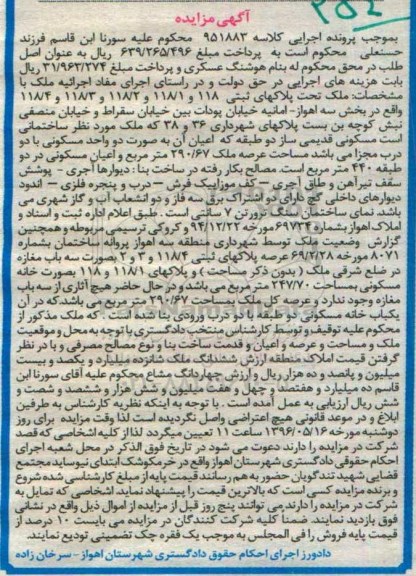 آگهی مزایده
بموجب پرونده اجرایی کلاسه ۹۵۱۸۸۳ محکوم علیه سورنا ابن قاسم فرزند
حسنعلی محکوم است به پرداخت مبلغ ۶۳۹/۲۶۵/۴۹۶ ریال به عنوان اصل
طلب در حق محکوم له بنام هوشنگ عسکری و پرداخت مبلغ ۳۱/۹۶۳/۲۷۴ ریال
بابت هزینه های اجرایی در حق دولت و در راستای اجرای مفاد اجرائیه ملک با
مشخصات: ملک تحت پلاکهای ثبتی ۱۱۸ و ۱۱۸/۱ و ۱۱۸/۲ و ۱۱۸/۳ و ۱۱۸/۴
واقع در بخش سه اهواز- امانیه خیابان پودات بین خیابان سقراط و خیابان منصفی
نبش کوچه بن بست پلاکهای شهرداری ۳۶ و ۳۸ که ملک مورد نظر ساختمانی
است مسکونی قدیمی ساز دو طبقه که اعیان آن به صورت دو واحد مسکونی با دو
درب مجزا می باشد مساحت عرصه ملک ۲۹۰/۶۷ متر مربع و اعیان مسکونی در دو
طبقه ۴۴۰ متر مربع است. مصالح بکار رفته در ساخت بنا : دیوارها آجری - پوشش
سقف تیرآهن و طاق آجری - کف موزاییک فرش - درب و پنجره فلزی - اندود
دیوارهای داخلی گچ دارای دو اشتراک برق سه فاز و دو انشعاب آب و گاز شهری می
باشد نمای ساختمان سنگ تروارتن ۷ سانتی است . طبق اعلام اداره ثبت و اسناد و
املاک اهواز بشماره ۶۹۷۳۴ مورخه ۹۴/۱۲/۲۲ و کروکی ترسیمی مربوطه و همچنین
گزارش وضعیت ملک توسط شهرداری منطقه سه اهواز پروانه ساختمان بشماره
۸۰۷۱ مورخه ۶۹/۷/۲۸ عرصه پلاکهای ثبتی ۱۱۸/۴ و ۳ و ۲ بصورت سه باب مغازه
در ضلع شرقی ملک ( بدون ذکر مساحت ) و پلاکهای ۱۱۸/۱ و ۱۱۸ بصورت خانه
مسکونی بمساحت ۲۴۷/۷۰ متر مربع می باشد و در حال حاضر هیچ آثاری از سه باب
مغازه وجود ندارد و عرصه کل ملک بمساحت ۲۹۰/۶۷ متر مربع می باشد که در آن
یکباب خانه مسکونی دو طبقه با دو درب ورودی بنا شده است . که ملک مذکور از
محکوم علیه توقیف و توسط کارشناس منتخب دادگستری با توجه به محل و موقعیت
ملک و مساحت و عرصه و اعیان و قدمت ساخت بنا و نوع مصالح مصرفی و با در نظر
گرفتن قیمت املاک منطقه ارزش ششدانگ ملک شانزده میلیارد و یکصد و بیست
میلیون و پانصد و ده هزار ریال و ارزش چهاردانگ مشاع محکوم علیه آقای سورنا ابن
قاسم ده میلیارد و هفتصد و چهل و هفت میلیون و شش هزار و ششصد و شصت و
شش ریال ارزیابی به عمل آمده است . با توجه به اینکه نظریه کارشناس به طرفین
ابلاغ و در موعد قانونی هیچ اعتراضی واصل نگردیده است لذا وقت مزایده برای روز
دوشنبه مورخه ۱۳۹۶/۰۵/۱۶ ساعت ۱۱ تعیین میگردد لذا از کلیه اشخاصی که قصد
شرکت در مزایده را دارند دعوت می شود در تاریخ فوق الذکر در محل شعبه اجرای
احکام حقوقی دادگستری شهرستان اهواز واقع در خرمکوشک ابتدای نیوساید مجتمع
قضایی شهید تندگویان حضور به هم رسانند قیمت پایه از مبلغ کارشناسی شده شروع
و برنده مزایده کسی است که بالاترین قیمت را پیشنهاد نماید اشخاصی که تمایل به
شرکت در مزایده را دارند می توانند پنج روز قبل از مزایده از اموال ذیل واقع در نشانی
فوق بازدید نمایند. ضمنا کلیه شرکت کنندگان در مزایده می بایست ۱۰ درصد از
قیمت پایه فروش را فی المجلس به موجب یک فقره چک تضمینی تودیع نمایند.
دادورز اجرای احکام حقوق دادگستری شهرستان اهواز - سرخان زاده